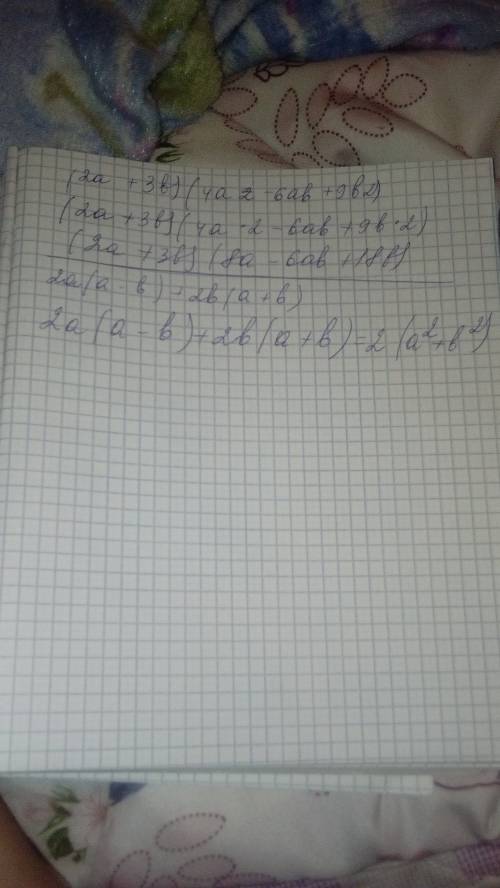 (2a + 3b) (4a 2 - 6ab + 9b2)
(2a + 3b) (4a · 2 - 6ab + 9b · 2)
(2a + 3b) (8a - 6ab + 18b)
2a (a - b) + 2b (a + b)
2a (a - b) + 2b (a + b) = 2 (a² + b²)